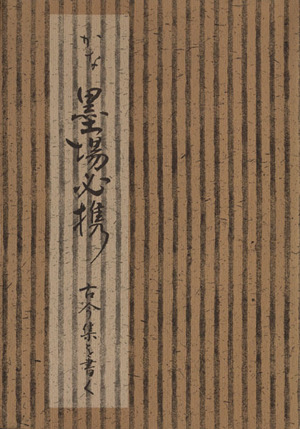 かな
墨場必携
古今集を書く